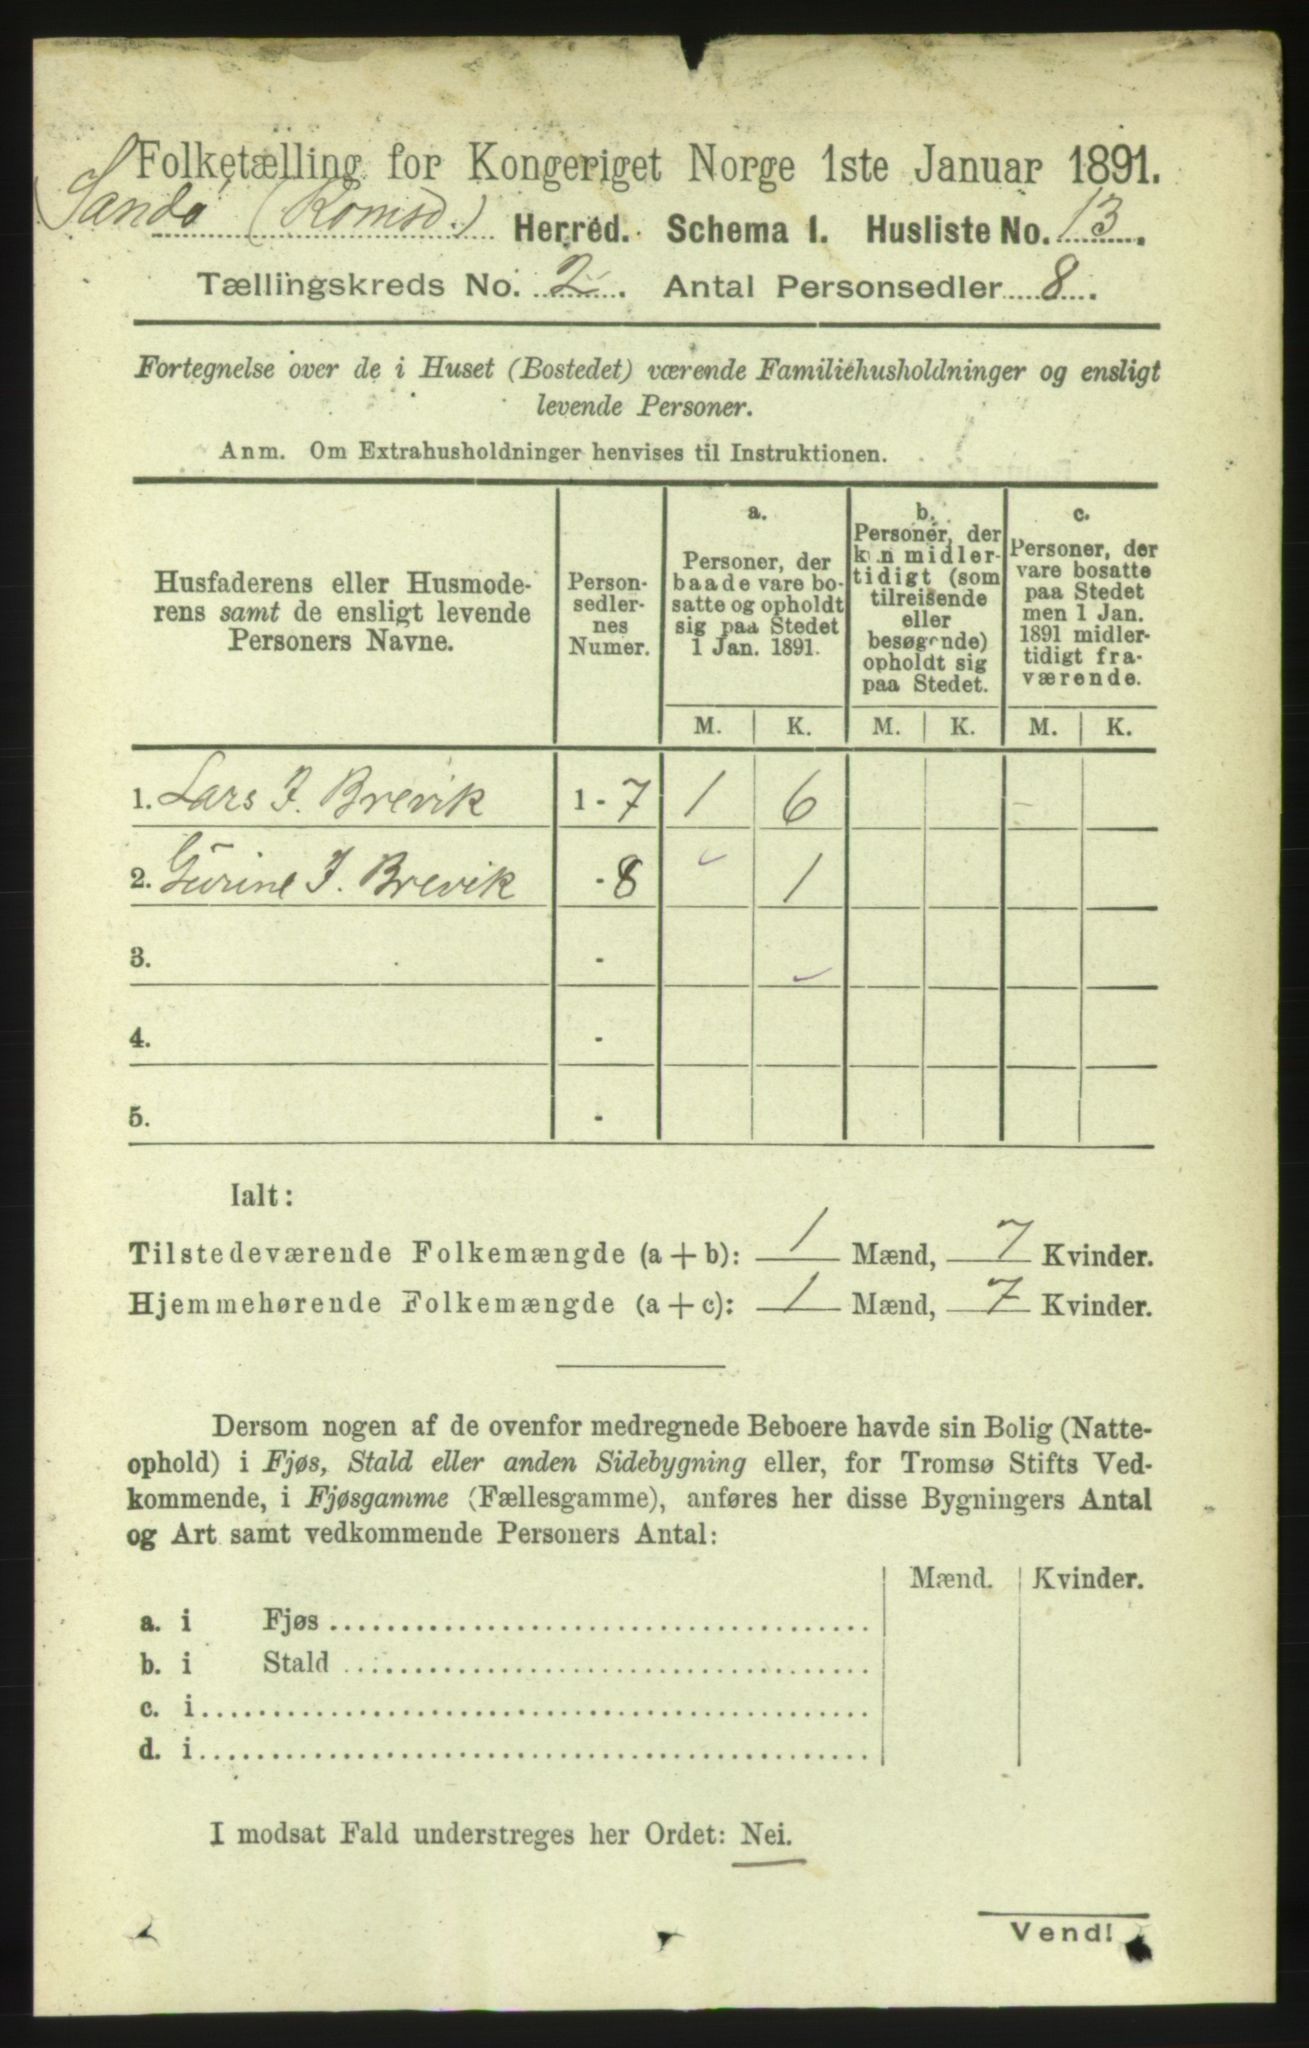 Folketælling for Kongeriget Norge 1ste Januar 1891.
Sandø (Romsd.) Herred. Schema 1. Husliste No. 13.
Tællingskreds No. 2. Antal Personsedler 8.
Fortegnelse over de i Huset (Bostedet) værende Familiehusholdninger og ensligt
levende Personer.
Anm. Om Extrahusholdninger henvises til Instruktionen.
Husfaderens eller Husmode-
rens samt de ensligt levende
Personers Navne.
Person-
sedler-
nes
Numer.
a.
Personer, der
baade vare bo-
satte og opholdt
sig paa Stedet
1 Jan. 1891.
b.
Personer, der
kun midler-
tidigt (som
tilreisende
eller
besøgende)
opholdt sig
paa Stedet.
c.
Personer, der
vare bosatte
paa Stedet
men 1 Jan.
1891 midler-
tidigt fra-
værende.
M. K. M. K. M. K.
1. Lars I. Brevik 1 - 7 1 6
2. Gurine I. Brevik - 8 1
3. -
4. -
5. -
Ialt:
Tilstedeværende Folkemængde (a + b): 1 Mænd, 7 Kvinder.
Hjemmehørende Folkemængde (a + c): 1 Mænd, 7 Kvinder.
Dersom nogen af de ovenfor medregnede Beboere havde sin Bolig (Natte-
ophold) i Fjøs, Stald eller anden Sidebygning eller, for Tromsø Stifts Ved-
kommende, i Fjøsgamme (Fællesgamme), anføres her disse Bygningers Antal
og Art samt vedkommende Personers Antal:
Mænd. Kvinder.
a. i Fjøs
b. i Stald
c. i
d. i
I modsat Fald understreges her Ordet: Nei.
Vend!